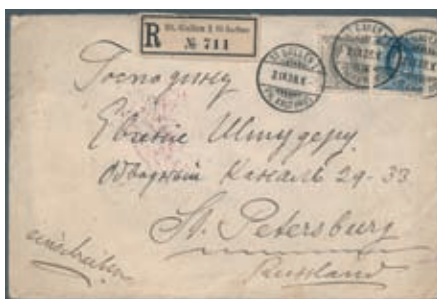 R St. Gallen 1
№ 711
ST. GALLEN 1
Господину
Евгенiе Штудеру
Обводный Каналъ 29-33
St. Petersburg
Russland
einschreiben